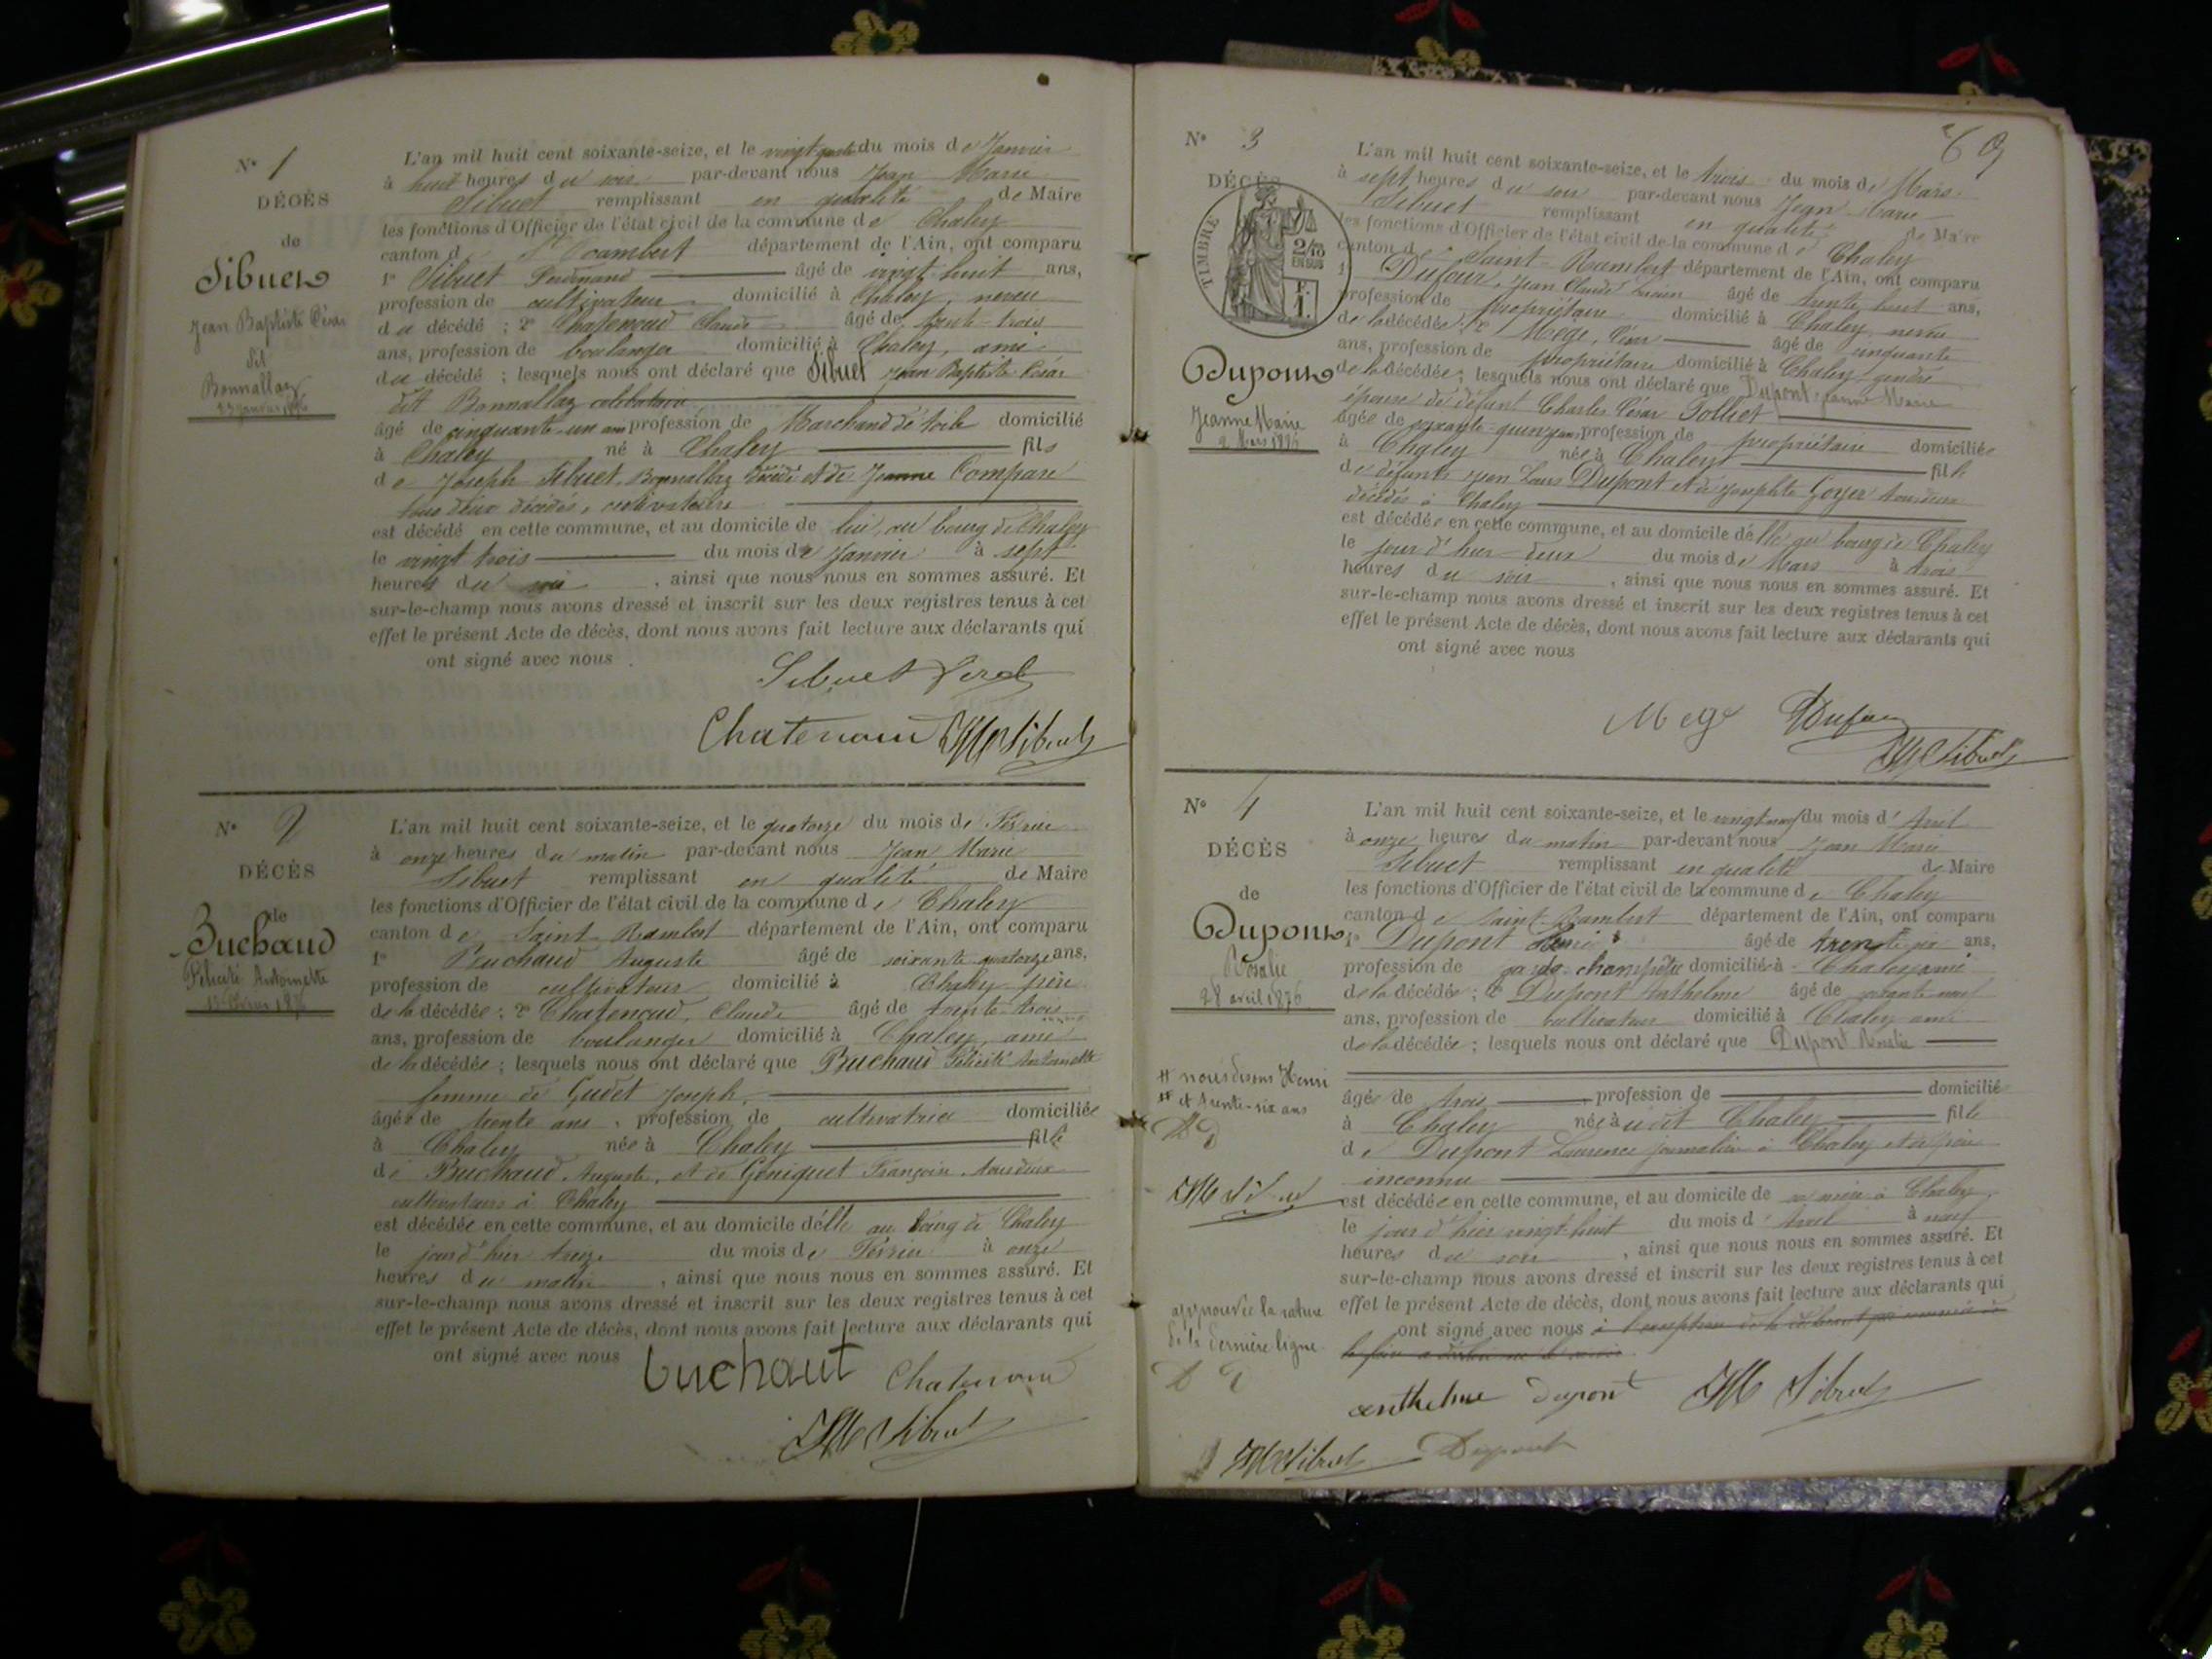 N° 1
DÉCÈS
de
Sibuet
Jean Baptiste César
dit
Bonnallaz
23 janvier 1876
L'an mil huit cent soixante-seize, et le vingt quatre du mois de Janvier
à huit heures du soir par-devant nous Jean Marie
Sibuet remplissant en qualité de Maire
les fonctions d'Officier de l'état civil de la commune de Chaley
canton d St Rambert département de l'Ain, ont comparu
1° Sibuet Ferdinand âgé de vingt huit ans,
profession de cultivateur domicilié à Chaley, neveu
du décédé ; 2° Chatenoud Claude âgé de trente-trois
ans, profession de boulanger domicilié à Chaley, ami
du décédé ; lesquels nous ont déclaré que Sibuet Jean Baptiste César
dit Bonnallaz célibataire
âgé de cinquante-un ans profession de Marchand de toile domicilié
à Chaley né à Chaley fils
de Joseph Sibuet Bonnallaz décédé et de Jeanne Compare
tous deux décédés, cultivateurs
est décédé en cette commune, et au domicile de lui, au bourg de Chaley
le vingt trois du mois de Janvier à sept
heures du soir , ainsi que nous nous en sommes assuré. Et
sur-le-champ nous avons dressé et inscrit sur les deux registres tenus à cet
effet le présent Acte de décès, dont nous avons fait lecture aux déclarants qui
ont signé avec nous .
Sibuet Ferd
Chatenoud JM Sibuet
N° 2
DÉCÈS
de
Buchaud
Félicité Antoinette
13 février 1876
L'an mil huit cent soixante-seize, et le quatorze du mois de Février
à onze heures du matin par-devant nous Jean Marie
Sibuet remplissant en qualité de Maire
les fonctions d'Officier de l'état civil de la commune de Chaley
canton de Saint Rambert département de l'Ain, ont comparu
1° Buchaud Auguste âgé de soixante quatorze ans,
profession de cultivateur domicilié à Chaley père
de la décédée ; 2° Chatenoud, Claude âgé de trente-trois
ans, profession de boulanger domicilié à Chaley, ami
de la décédée ; lesquels nous ont déclaré que Buchaud Félicité Antoinette
femme de Gudet Joseph,
âgée de trente ans , profession de cultivatrice domiciliée
à Chaley née à Chaley fille
de Buchaud Auguste, et de Goniquet Françoise tous deux
cultivateurs à Chaley
est décédée en cette commune, et au domicile d'elle au bourg de Chaley
le jour d'hier treize du mois de Février à onze
heures du matin , ainsi que nous nous en sommes assuré. Et
sur-le-champ nous avons dressé et inscrit sur les deux registres tenus à cet
effet le présent Acte de décès, dont nous avons fait lecture aux déclarants qui
ont signé avec nous
buchaut Chatenoud
JM Sibuet
69
N° 3
DÉCÈS
TIMBRE
2/10
EN SUS
F.
1.
Dupont
Jeanne Marie
2 Mars 1876
L'an mil huit cent soixante-seize, et le trois du mois de Mars
à sept heures du soir par-devant nous Jean Marie
Sibuet remplissant en qualité de Maire
les fonctions d'Officier de l'état civil de la commune de Chaley
canton de Saint-Rambert département de l'Ain, ont comparu
1° Dufour, Jean Claude âgé de trente huit ans,
profession de propriétaire domicilié à Chaley neveu
de la décédée ; 2° Mege, César âgé de cinquante
ans, profession de propriétaire domicilié à Chaley gendre
de la décédée ; lesquels nous ont déclaré que Dupont Jeanne Marie
épouse de défunt Charles César Jolliet
âgée de soixante-quinze ans profession de propriétaire domiciliée
à Chaley née à Chaley fille
de défunts Jean Louis Dupont et de Josephte Goyer tous deux
décédés à Chaley
est décédée en cette commune, et au domicile d'elle au bourg de Chaley
le jour d'hier deux du mois de Mars à trois
heures du soir , ainsi que nous nous en sommes assuré. Et
sur-le-champ nous avons dressé et inscrit sur les deux registres tenus à cet
effet le présent Acte de décès, dont nous avons fait lecture aux déclarants qui
ont signé avec nous
Mege Dufour
JM Sibuet
N° 4
DÉCÈS
de
Dupont
Rosalie
28 avril 1876
L'an mil huit cent soixante-seize, et le vingt neuf du mois d'Avril
à onze heures du matin par-devant nous Jean Marie
Sibuet remplissant en qualité de Maire
les fonctions d'Officier de l'état civil de la commune de Chaley
canton de Saint-Rambert département de l'Ain, ont comparu
1° Dupont Henri âgé de trente six ans,
profession de garde-champêtre domicilié à Chaley ami
de la décédée ; 2° Dupont Anthelme âgé de neuf
ans, profession de cultivateur domicilié à Chaley ami
de la décédée ; lesquels nous ont déclaré que Dupont Rosalie
âgée de trois profession de domiciliée
à Chaley née à udit Chaley fille
de Dupont Laurence journalière à Chaley et de père
inconnu
est décédée en cette commune, et au domicile de sa mère à Chaley
le jour d'hier vingt-huit du mois d'Avril à neuf
heures du soir , ainsi que nous nous en sommes assuré. Et
sur-le-champ nous avons dressé et inscrit sur les deux registres tenus à cet
effet le présent Acte de décès, dont nous avons fait lecture aux déclarants qui
ont signé avec nous
# nous disons Henri
# et trente-six ans
D D
JM Sibuet
approuvée la rature
de la dernière ligne
D D
anthelme Dupont JM Sibuet
JM Sibuet Dupont